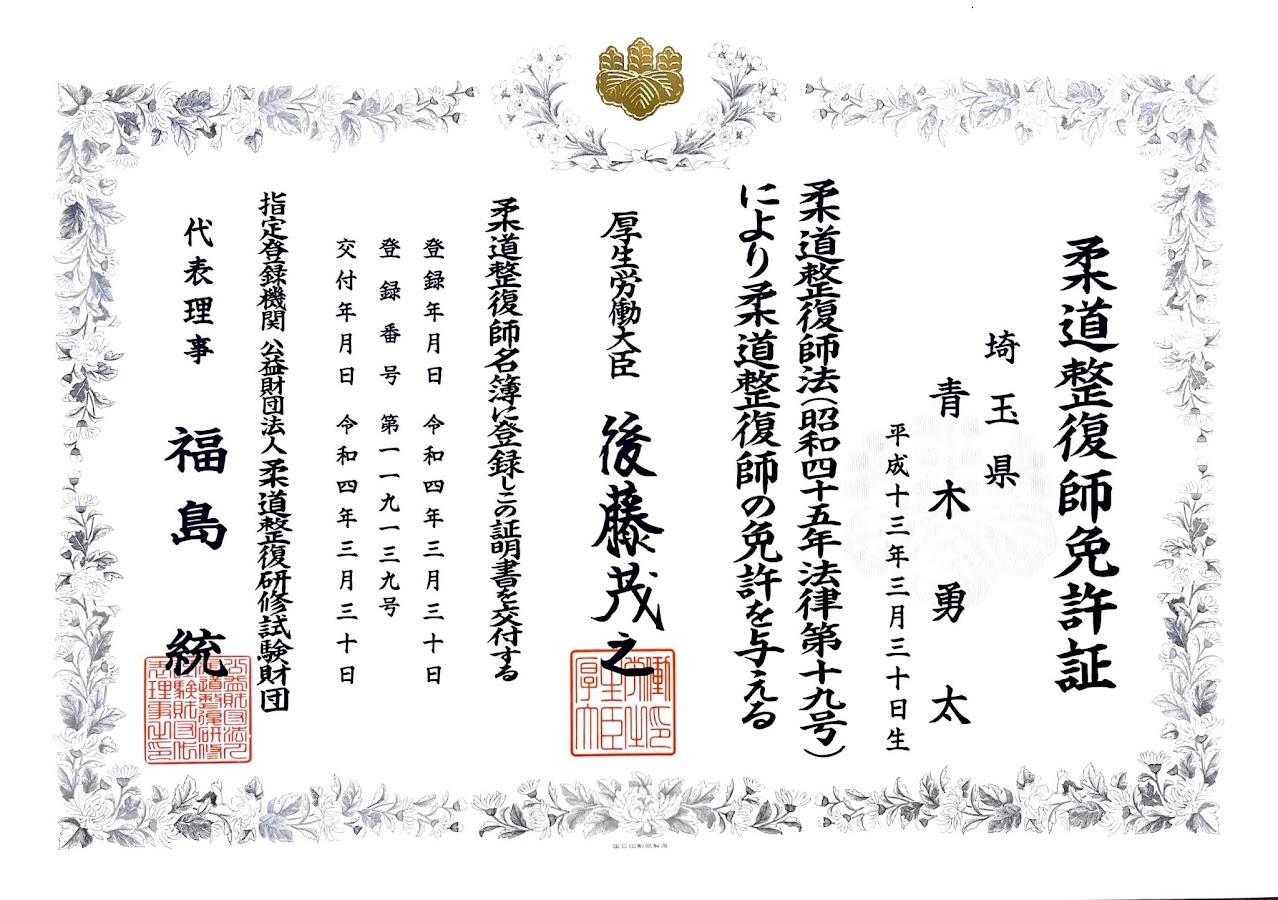 柔道整復師免許証
埼玉県
青木勇太
平成十三年三月三十日生
柔道整復師法(昭和四十五年法律第十九号)
により柔道整復師の免許を与える
厚生労働大臣 後藤茂之
柔道整復師名簿に登録しこの証明書を交付する
登録年月日 令和四年三月三十日
登録番号 第一一九一三九号
交付年月日 令和四年三月三十日
指定登録機関 公益財団法人柔道整復研修試験財団
代表理事 福島 統